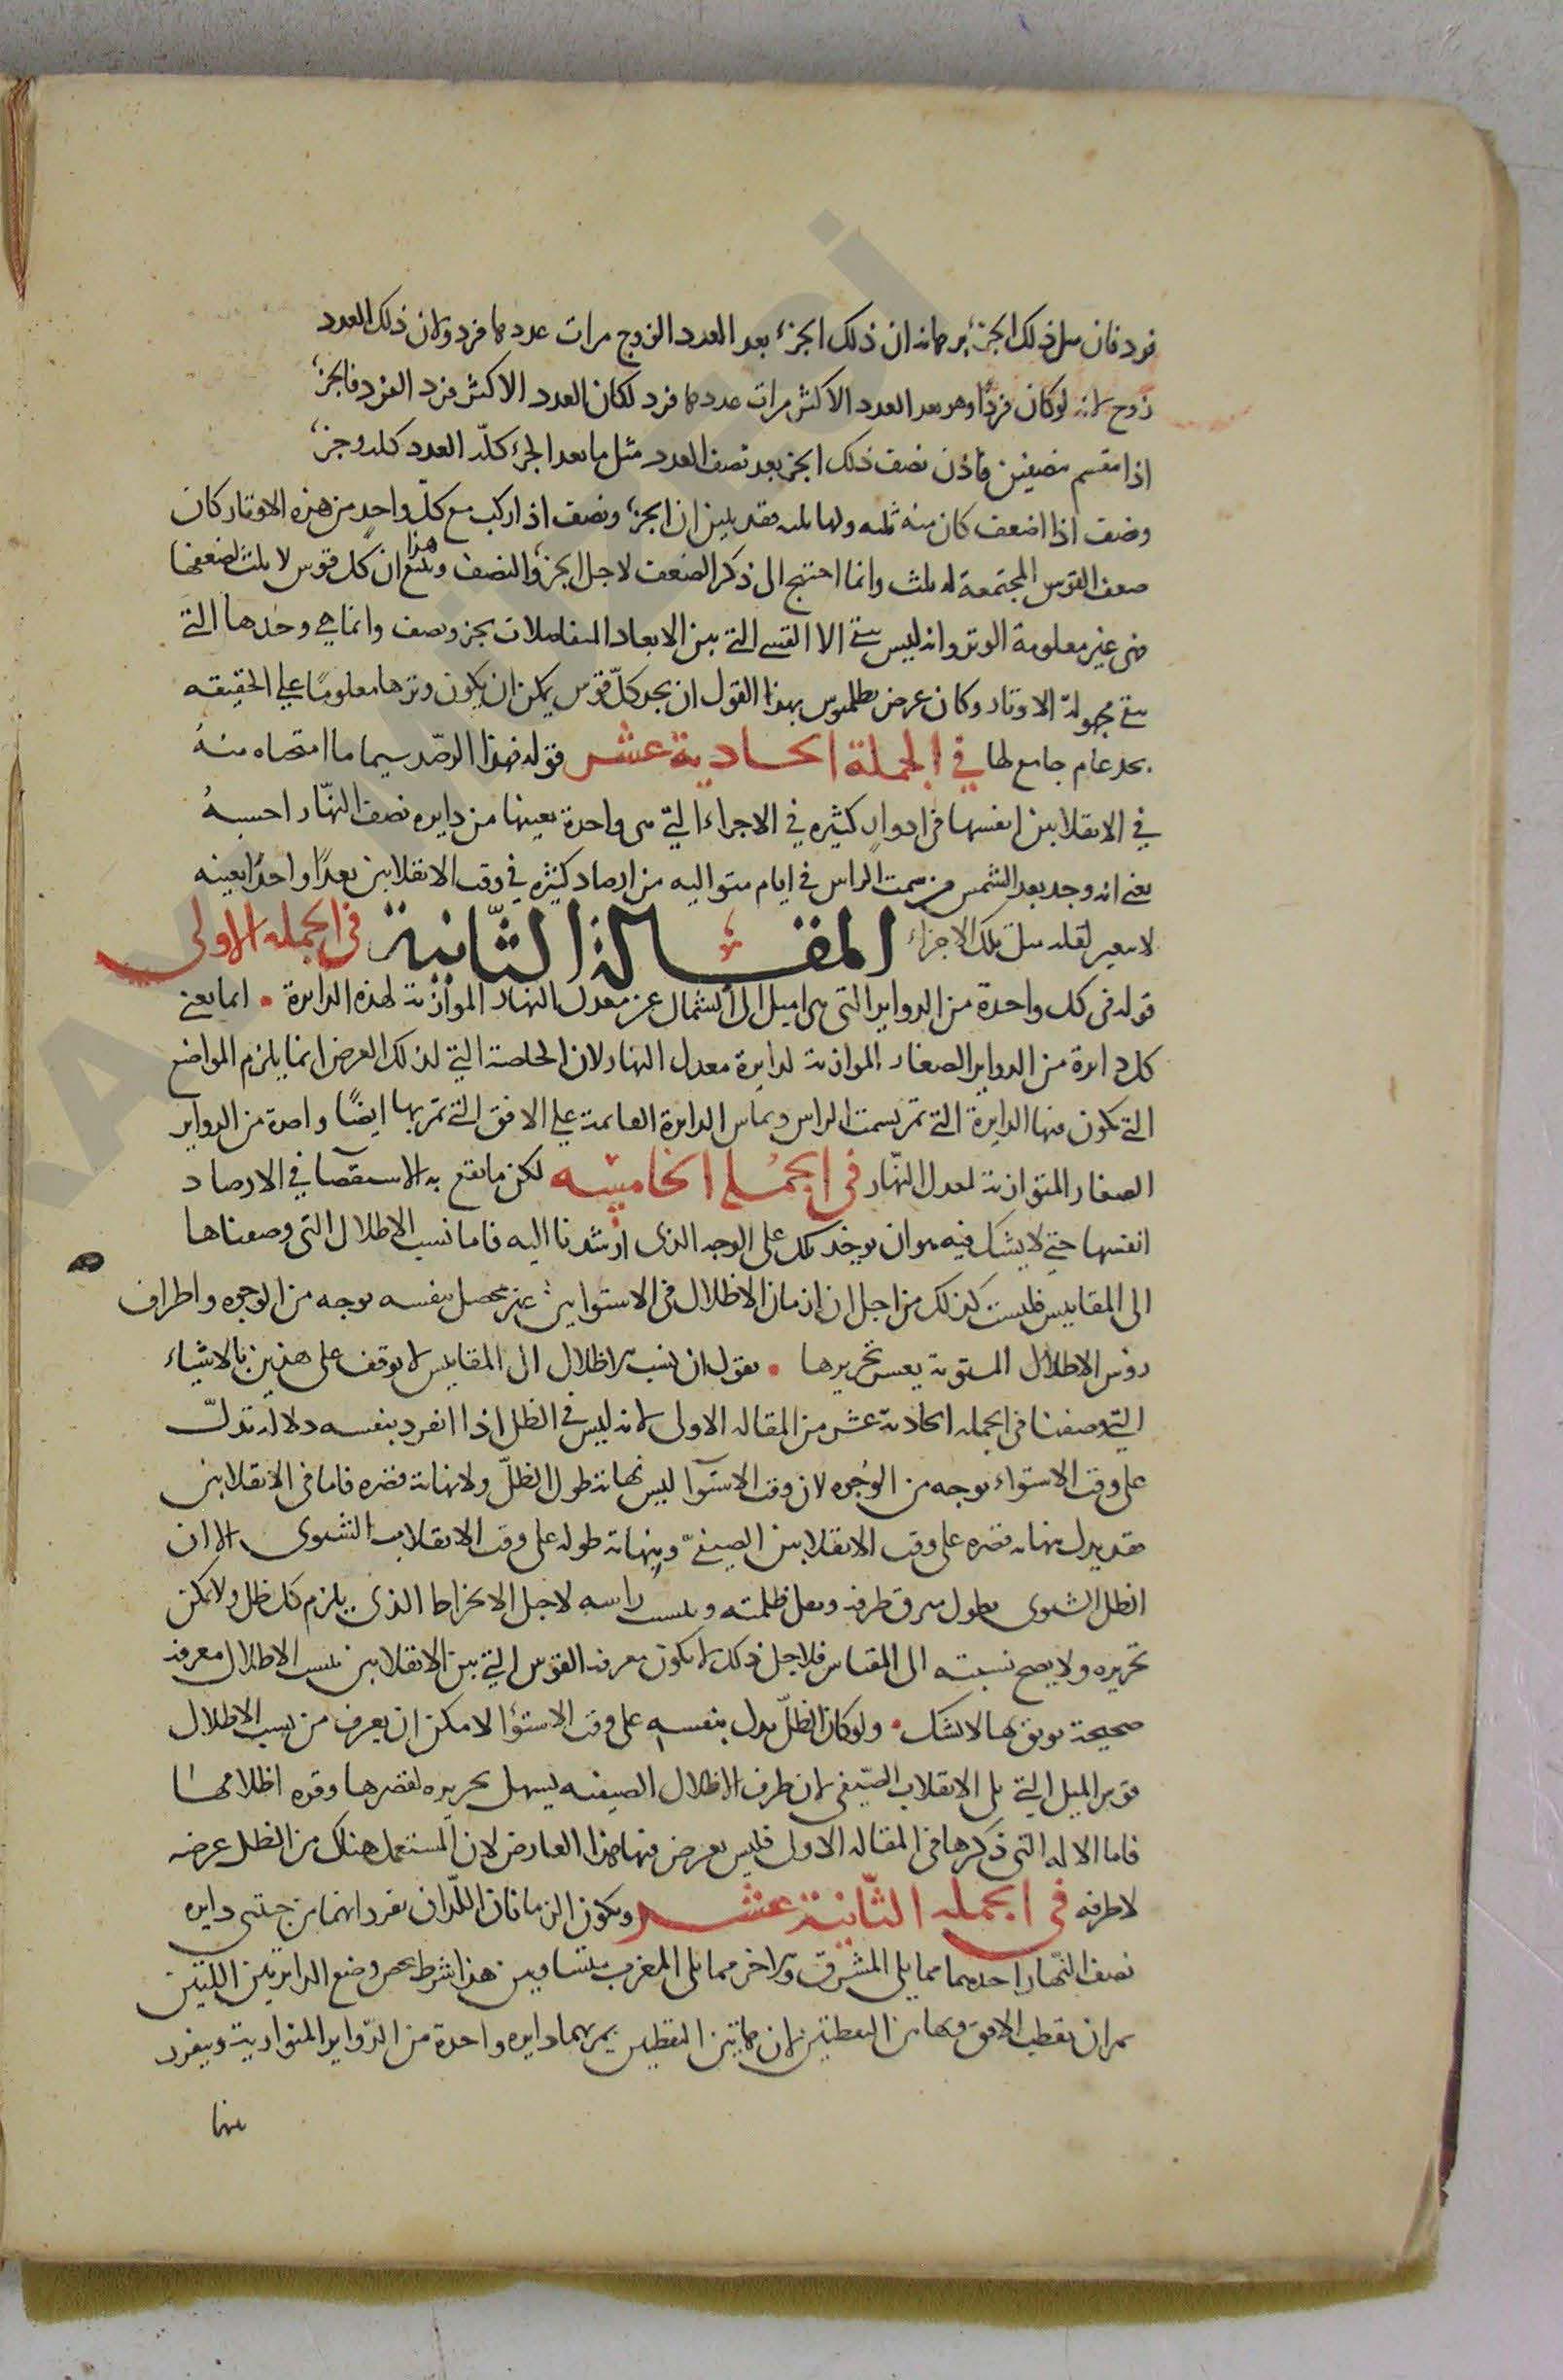 فرد فان مثل ذلك الجزء برهانه ان ذلك الجزء يعد العدد الزوج مرات عددها فرد ولان ذلك العدد
زوج لانه لو كان فردًا وهو يعد العدد الاكثر مرات عددها فرد لكان العدد الاكثر فرد الفرد فالجزء
اذا مقسم بنصفين فاذن نصف ذلك الجزء يعد نصف العدد مثل ما يعد الجزء كلّه العدد كله وجزء
ونصف اذا اضعف كان منه ثلثه ولها ثلثه فقد يتبين ان الجزء ونصف اذا ركب مع كلّ واحدٍ من هذه الاوتار كان
ضعف القوس المجتمعة له ثلث وانما احتج الى ذكر الضعف لاجل الجزء والنصف ويتبع هذا ان كل قوس لا ثلث لضعفها
فهي غير معلومة الوتر وانه ليس يبقى الا القسي التي بين الابعاد المتفاضلات بجزء ونصف وانما هي وحدها التي
تبقى مجهولة الاوتار وكان غرض بطلميوس بهذا القول ان يحد كلّ قوس يمكن ان يكون وترها معلومًا على الحقيقه
بحد عام جامع لها في الجملة الحادية عشر قوله فهذا الرصد سيما ما امتحناه منهُ
في الانقلابين انفسها في ادوار كثيره في الاجزاء التي هي واحدة بعينها من دايره نصف النهّار احسبهُ
يعني انه وجد بعد الشمس من سمت الراس في ايام متواليه من ارصاد كثيره في وقت الانقلابين بعدًا واحدًا بعينه
لا يتغير لقله ميل تلك الاجزاء المقالة الثّانية في الجمله الاولى
قوله في كل واحدة من الدواير التي هي اميل الى الشمال عن معدل النهار الموازية لهذه الدايرة • انما يعني
كل دايرة من الدواير الصغار الموازية لدايرة معدل النهار لان الخاصة التي لذلك العرض انما يلزم المواضع
التي تكون فيها الدايرة التي تمر بسمت الراس وتماس الدايرة القايمة على الافق التي تمر بها ايضًا واحدة من الدواير
الصغار المتوازية لمعدل النهّار في الجملة الخامسه لكن ما يقع به الاستقصا في الارصاد
انفسها حتى لا يشك فيه هو ان يوخذ تلك على الوجه الذي ارشدنا اليه فاما نسب الاظلال التي وصفناها
الى المقاييس فليست كذلك من اجل ان ازمان الاظلال في الاستوايين غير محصل بنفسه بوجه من الوجوه واطراف
روس الاظلال المستوية يعسر تحريرها • نقول ان نسب الاظلال الى المقاييس لا يوقف على هذين بالاشياء
التي وصفنا في الجمله الحادية عشر من المقاله الاولى لانه ليس في الظل اذا انفرد بنفسه دلاله تدلّ
على وقت الاستواء بوجه من الوجوه لان وقت الاستوآ ليس نهاية طول الظلّ ولا نهاية قصره فاما في الانقلابين
فقد يدل نهاية قصره على وقت الانقلابين الصيفيّ وبنهاية طوله على وقت الانقلاب الشتوي الا ان
الظل الشتوي يطول طرفه ظلمته راسه لاجل الانخراط الذي يلزم كل ظل ولا يمكن
تحريره ولا يصح نسبته الى المقياس فلاجل ذلك لا يكون معرفة القوس التي بين الانقلابين بنسب الاظلال معرفه
صحيحة يوثق بها لا شك • ولو كان الظلّ يدل بنفسه على وقت الاستوا لامكن ان يعرف من نسب الاظلال
قوس الميل التي تلي الانقلاب الصيّفي لان طرف الاظلال الصيفيه يسهل تحريره لقصرها وقوه اظلامها
فاما الاله التي ذكرها في المقاله الاولى فليس يعرض فيها هذا العارض لان المستعمل هناك من الظل عرضه
لا طرفه في الجمله الثّانية عشر ويكون الزمانان اللّذان تفرد انهما من جنبتي دايره
نصف النهّار احدهما مما يلي المشرق والاخر مما يلي المغرب متساويين هذا شرط يخص وضع الدايرتين اللتين
تمران بقطب الافق وبهاتين النقطتين لان هاتين النقطتين يمر بهما دايره واحدة من الدّواير المتوازية وينفرد
بها